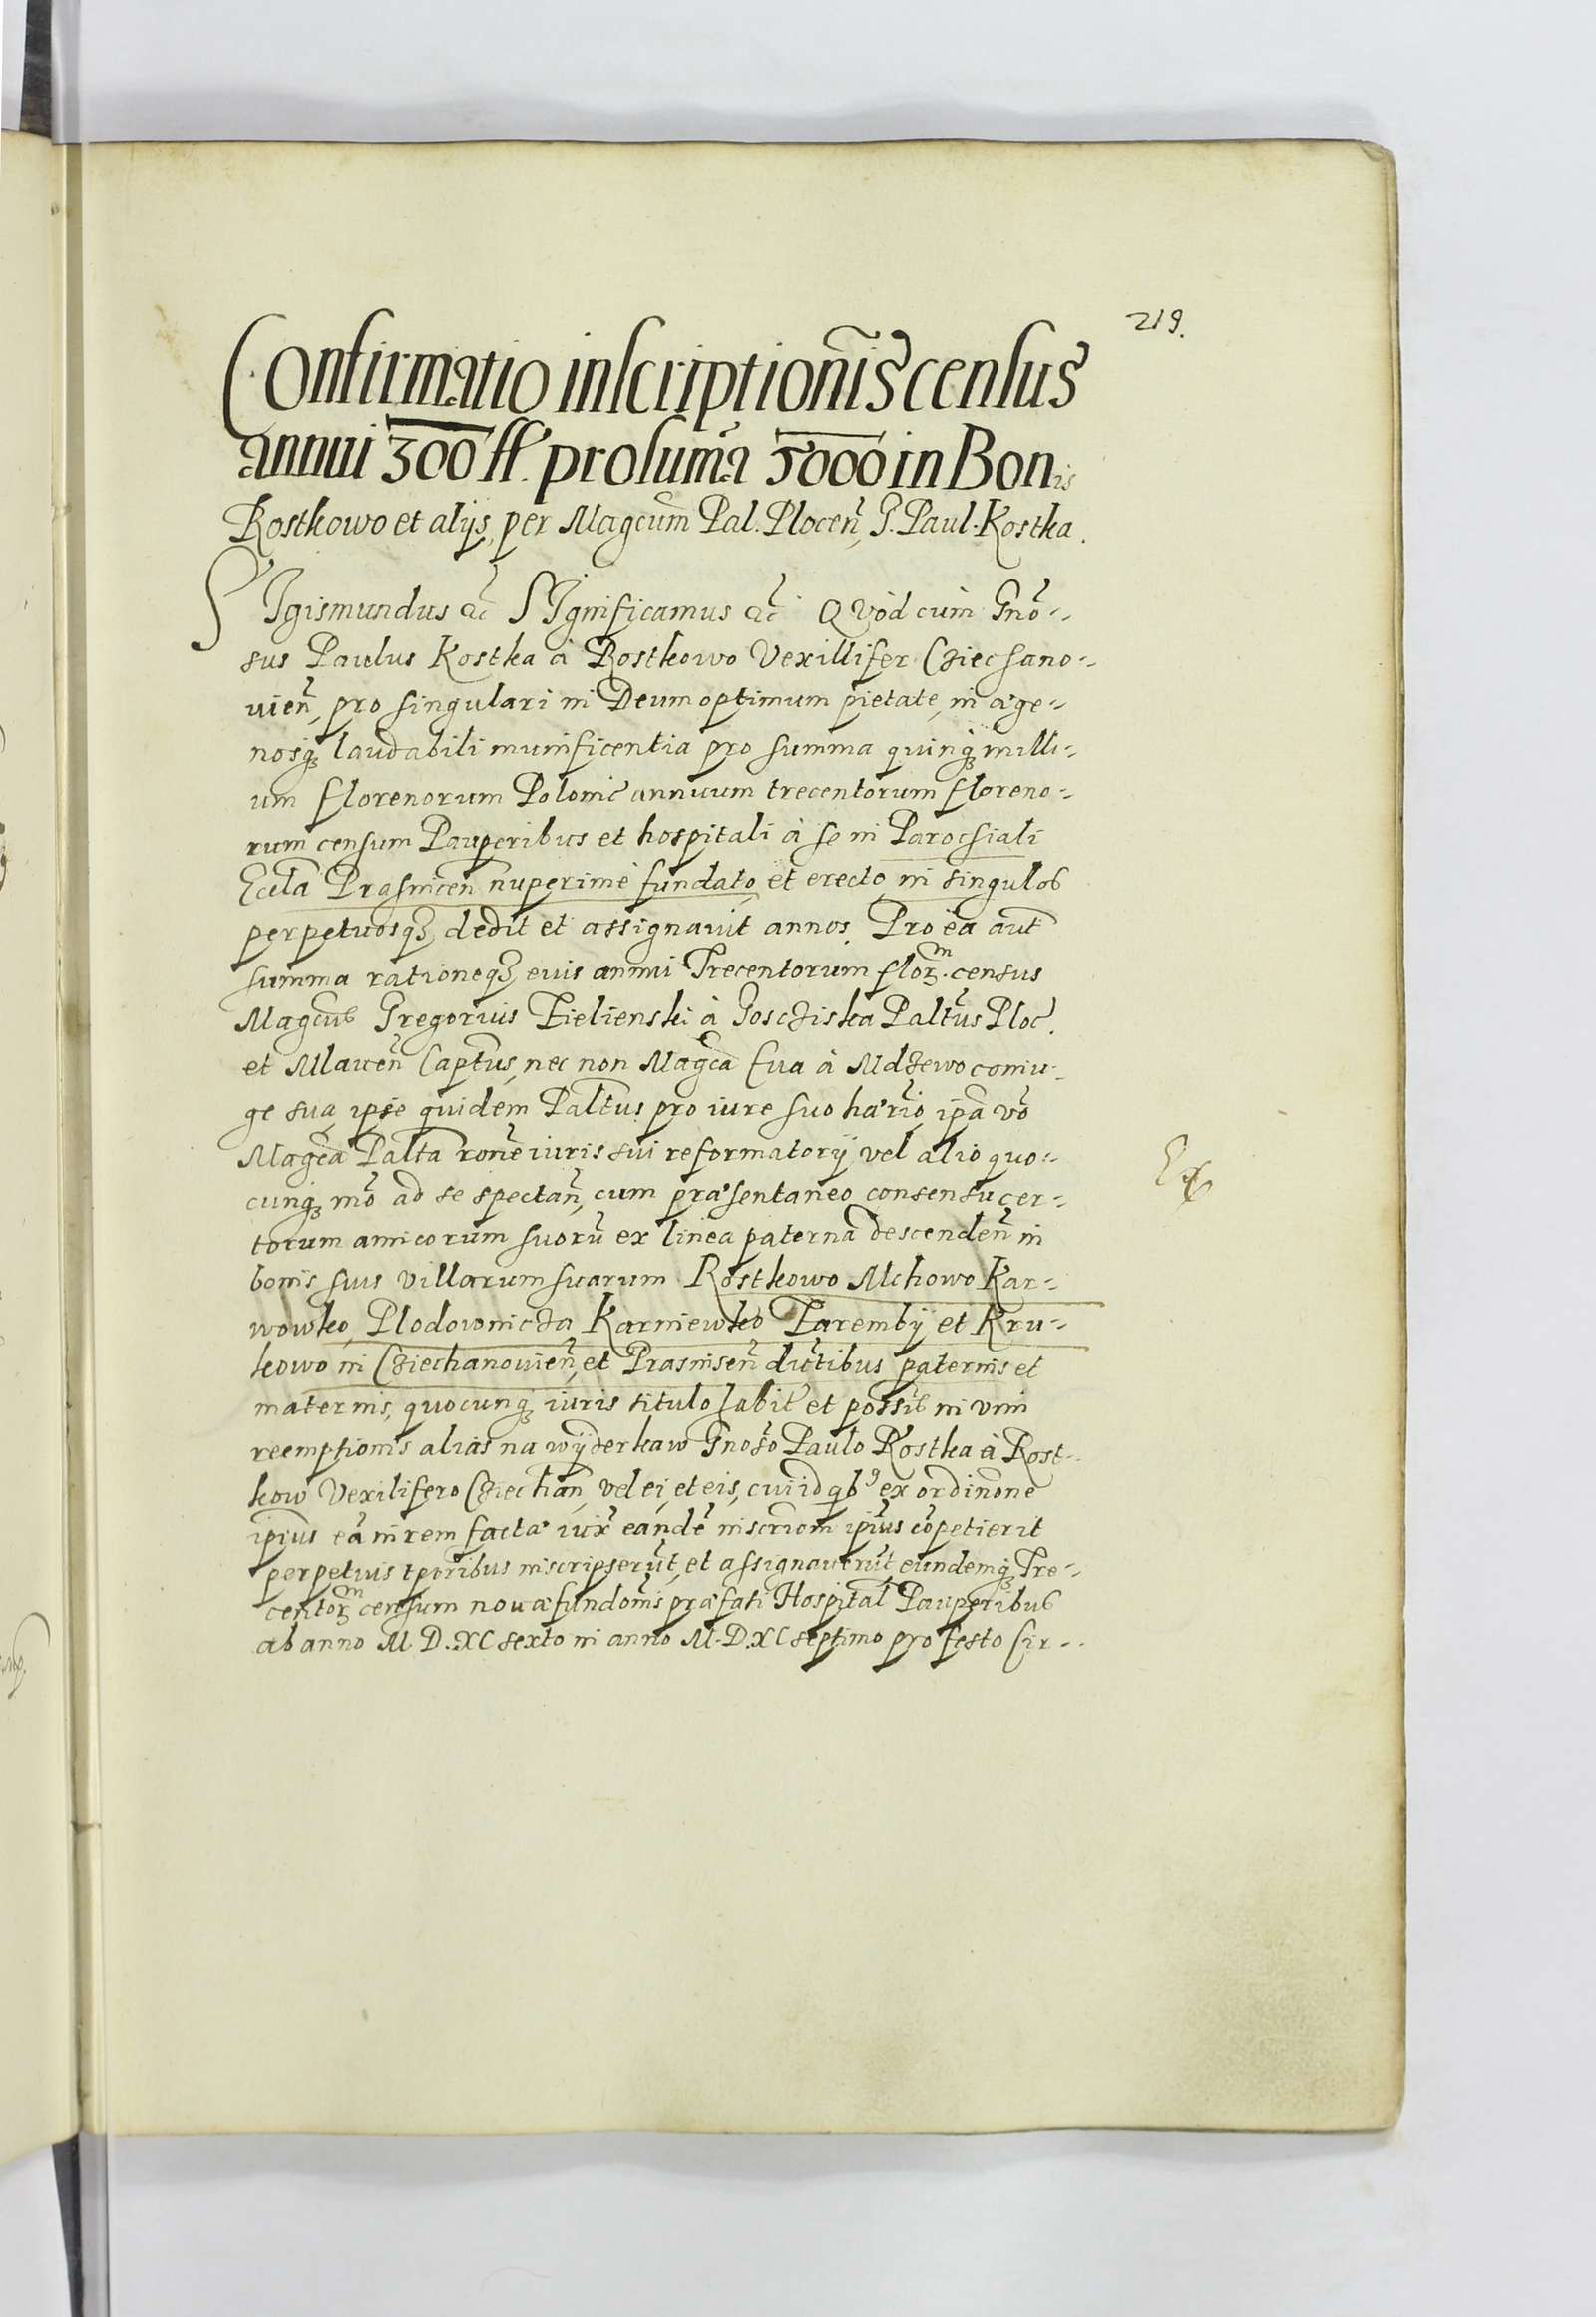 219.
Confirmatio inscriptiom̃s census
annui 300 ff. pro sum̃a 5000 in Bonis
Rostkowo et alijs, per Magcum̃ Pal. Plocen̄, G. Paul. Kostka.
SIgismundus &c̃ SIgnificamus &c̃ Quod cum Gnõ-
sus Paulus Kostka à Rostkowo Vexillifer Cziechano-
uien̄, pro singulari in Deum optimum pietate, in ege-
nosq₃ laudabili munificentia pro summa quinq₃ milli-
um florenorum Poloniĉ annuum trecentorum floreno-
rum censum Pauperibus et hospitali à se in Parochiali
Eccla Prasnicen̄ nuperime fundato, et erecto, in singulos
perpetuosq₃ dedit et assignauit annos. Pro ea aut̃
summa rationeq₃ eius annui Trecentorum floꝝm. census
Magcus Gregorius Zielienski à Goscziska Paltũs Ploc̃.
et Mlauen̄ Captũs, nec non Magca Eua à Mdzewo coniu-
ge sua, ipse quidem Paltũs pro iure suo hærio, ipa võ
Magca Palta rone iuris sui reformatorij vel alio quo-
cunq₃ mõ ad se spectan̄, cum præsentaneo consensu cer-
torum amicorum suorũ ex linea paterna descenden̄ in
bonis suis villarum suarum Rostkowo Mchowo Kar-
wowko, Plodowniczа Karniewko Zarembij et Kru-
kowo in Cziechanouien̄, et Prasnisen̄ dictibus paternis et
maternis, quocunq₃ iuris titulo habit̃ et possis̃ in vim
reemptionis alias na wyderkaw Gnoso Paulo Kostka à Rost-
kow Vexilifero Cziechan̄, vel ei, et eis, cui id qb⁹ ex ordinõne
ipius eã in rem facta iux̃ eandẽ inscriõm ipius cõpetierit
perpetuis tporibus inscripserũt, et assignauerũt, eundemq₃ Tre-
centoꝝm censum nouæ fundoñis præfati Hospital̃ Pauperibus
ab anno M.D.XC sexto in anno M.D.XC septimo pro festo Cir-